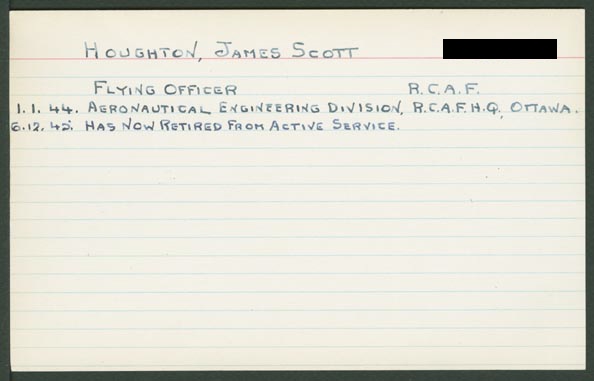 HOUGHTON, JAMES SCOTT
FLYING OFFICER R.C.A.F.
1.1.44. AERONAUTICAL ENGINEERING DIVISION, R.C.A.F.H.Q, OTTAWA.
6.12.45. HAS NOW RETIRED FROM ACTIVE SERVICE.